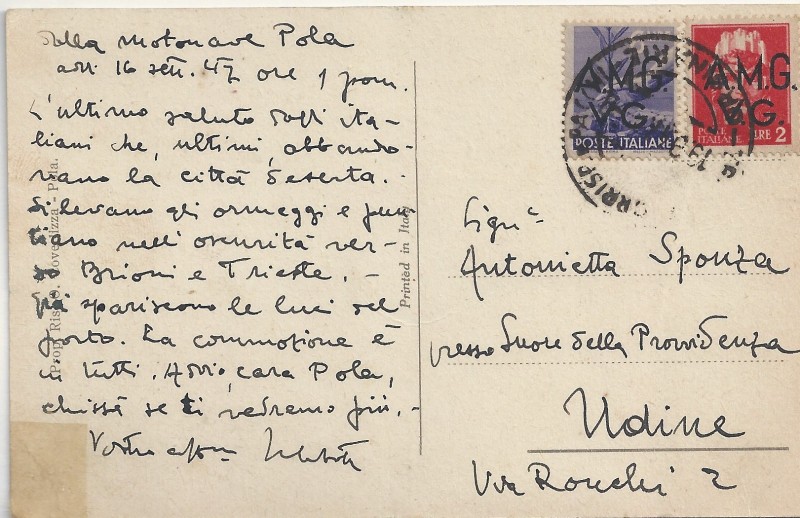 Sulla motonave Pola
addì 16 sett. 47 ore 1 pom.
L'ultimo saluto dagli ita-
liani che, ultimi, abbando-
nano la città deserta. -
Si levano gli ormeggi e pun
tiano nell'oscurità ver-
so Brioni e Trieste. -
Già spariscono le luci del
porto. La commozione è
in tutti. Addio, cara Pola,
chissà se ti vedremo più. -
Vostro
Prop. Ris. Pola.
Printed in Italy
A.M.G.
V.G.
POSTE ITALIANE
A.M.G.
V.G.
POSTE ITALIANE LIRE 2
Sig.ª
Antonietta Sponza
presso Suore della Provvidenza
Udine
Via Ronchi 2